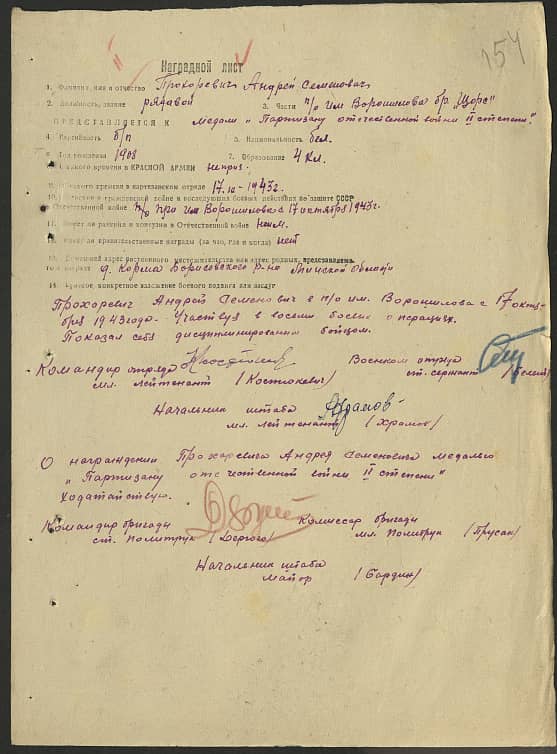 154
Наградной лист
1. Фамилия, имя и отчество Прохоревич Андрей Семенович
2. Должность, звание рядовой 3. Части п/о им Ворошилова бр. "Щорс"
ПРЕДСТАВЛЯЕТСЯ К медали "Партизану отечественной войны II степени."
4. Партийность б/п 5. Национальность бел.
6. Год рождения 1908 7. Образование 4 кл.
с какого времени в КРАСНОЙ АРМИИ
какого времени в партизанском отряде 17.10-1943г.
10. Участие в гражданской войне и последующих боевых действиях по защите СССР
Отечественной войне п/о им Ворошилова с 17 октября 1943г.
11. Имеет ли ранения и контузии в Отечественной войне неим.
12. Имеет ли правительственные награды (за что, где и когда) нет
13. Домашний адрес постоянного местожительства или адрес родных, представляемого
д. Корма Борисовского р-на Минской области
14. Краткое, конкретное изложение боевого подвига или заслуг
Прохоревич Андрей Семенович в п/о им. Ворошилова с 17 октя-
бря 1943 года. Участвуя в восьми боевых операциях.
Показал себя дисциплинированным бойцом.
Командир отряда Военком отряда
мл. лейтенант /Костюкевич/ ст. сержант
Начальник штаба
мл. лейтенант /Храмов/
О награждении Прохоревича Андрея Семеновича медалью
"Партизану отечественной войны II степени"
Ходатайствую.
Командир бригады Комиссар бригады
ст. политрук /Дерюга/ мл. политрук /Прусак/
Начальник штаба
майор /Бардин/